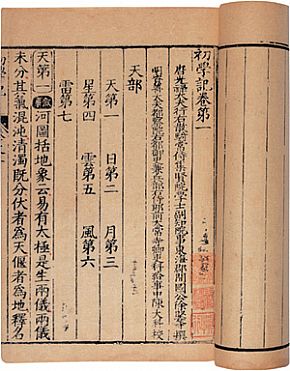 初學記卷第一
唐光祿大夫行右散騎常侍集賢院學士副知院事東海郡開國公徐堅等撰
兵部右侍郎前太常寺 吏科給事中陳大科校
天部
天第一 日第二 月第三
星第四 雲第五 風第六
雷第七
天第一 敘事 河圖括地象云易有太極是生兩儀兩儀
未分其氣混沌清濁既分伏者為天偃者為地釋名